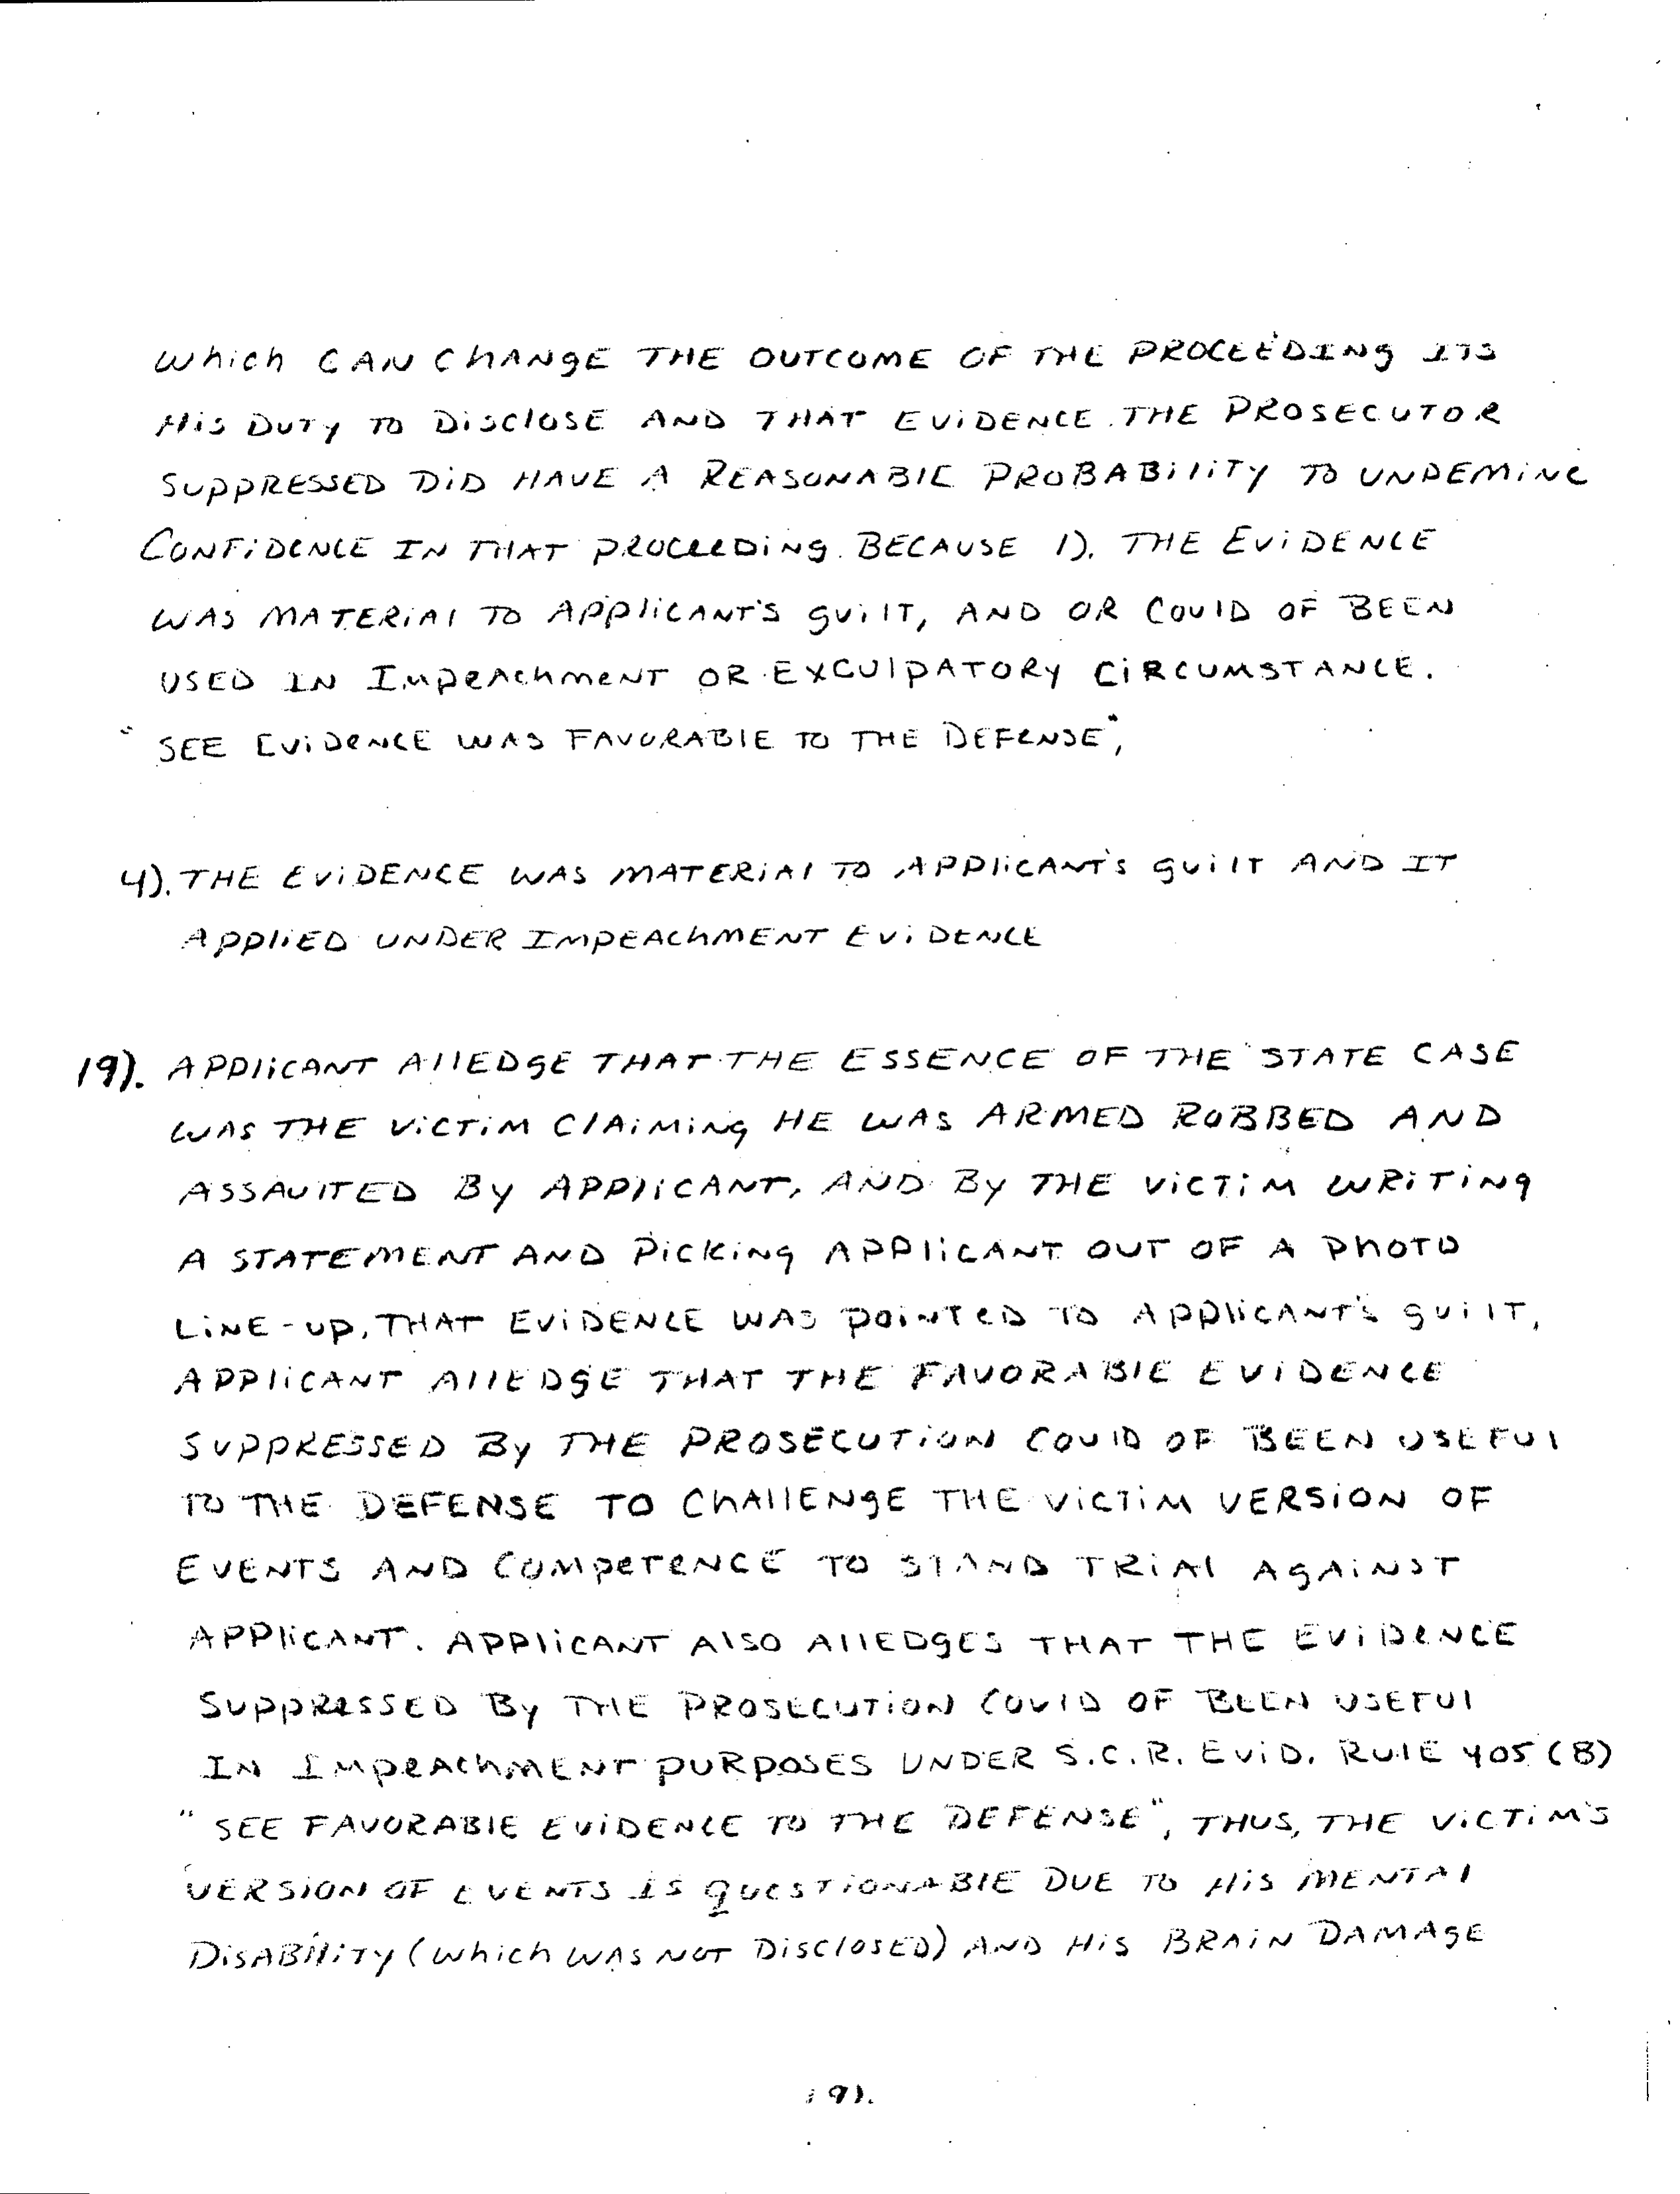 Which CAN ChANgE THE OUTCOME OF THE PROCEEDINg ITS
His DUTy TO DisclosE AND THAT EViDENCE THE PROSECUTOR
SUppRESSED DiD HAVE A REASONABlE PROBABiliTy TO UNDEMiNE
CONFiDENCE IN THAT pROCEEDiNg. BECAUSE 1). THE EViDENCE
WAS MATERiAl TO ApplicANT'S guilT, AND OR COUlD OF BEEN
USED IN ImpEAchmENT OR EXCUlpATORy CiRCUMSTANCE.
"SEE EViDENCE WAS FAVORABlE TO THE DEFENSE",
4). THE EViDENCE WAS MATERiAl TO ApplicANT'S guilT AND IT
ApplIED UNDER IMpEAchMENT EViDENCE
19). ApplicANT AllEDgE THAT THE ESSENCE OF THE STATE CASE
WAS THE VicTiM ClAiMiNg HE WAS ARMED ROBBED AND
ASSAUlTED By ApplicANT, AND By THE VicTiM WRiTiNg
A STATEMENT AND PickiNg ApplicANT OUT OF A phOTO
LiNE-Up, THAT EViDENCE WAS pOiNTED TO ApplicANT'S guilT,
ApplicANT AllEDgE THAT THE FAVORABlE EViDENCE
SUppRESSED By THE PROSECUTiON COUlD OF BEEN USEFUl
TO THE DEFENSE TO ChAllENgE THE VicTiM VERSiON OF
EVENTS AND COMpETENCE TO STAND TRiAl AgAiNST
ApplicANT. ApplicANT AlSO AllEDgES THAT THE EViDENCE
SUppRESSED By THE PROSECUTiON COUlD OF BEEN USEFUl
IN IMpEAchMENT pURpOSES UNDER S.C.R. EViD. RUlE 405 (B)
"SEE FAVORABlE EViDENCE TO THE DEFENSE", THUS, THE VicTiM'S
VERSiON OF EVENTS IS QUESTiONABlE DUE TO His MENTAl
DiSABiliTy (Which WAS NOT DisclosED) AND His BRAiN DAMAgE
19).